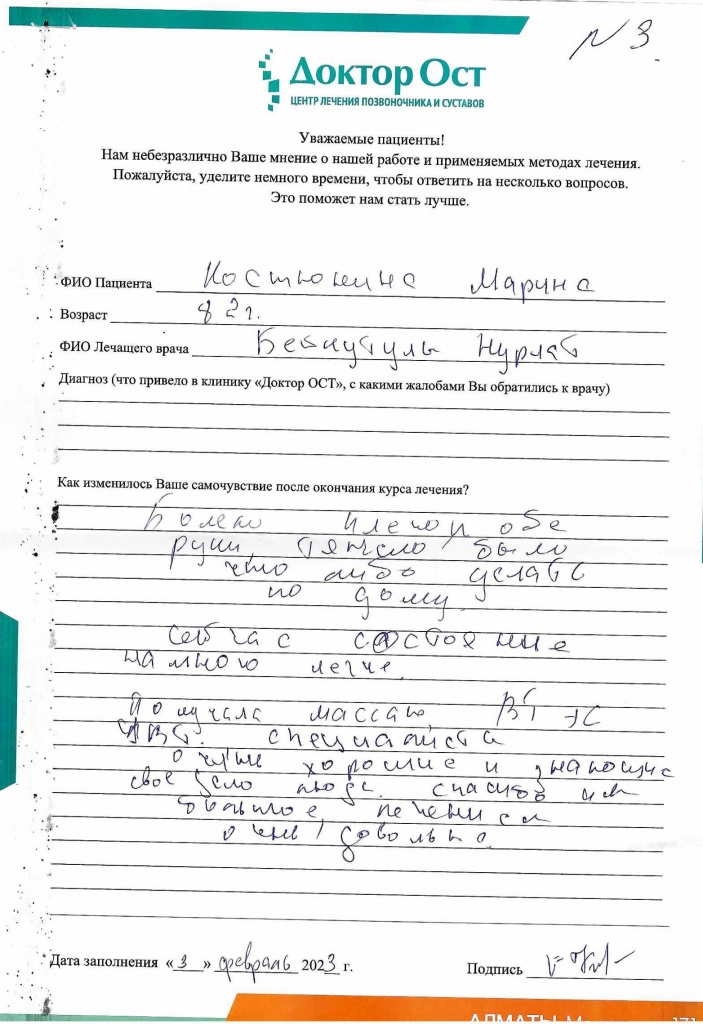 N 3.
Доктор Ост
ЦЕНТР ЛЕЧЕНИЯ ПОЗВОНОЧНИКА И СУСТАВОВ
Уважаемые пациенты!
Нам небезразлично Ваше мнение о нашей работе и применяемых методах лечения.
Пожалуйста, уделите немного времени, чтобы ответить на несколько вопросов.
Это поможет нам стать лучше.
ФИО Пациента Костюнина Марина
Возраст 82 г.
ФИО Лечащего врача
Диагноз (что привело в клинику «Доктор ОСТ», с какими жалобами Вы обратились к врачу)
Как изменилось Ваше самочувствие после окончания курса лечения?
обе
руки, тяжело было
что либо делать
по дому.
Сейчас состояние
намного легче.
Получала массаж,
специалисты
очень хорошие и знающие
свое дело люди. спасибо им
большое, лечением
очень довольна.
Дата заполнения «3» февраль 2023 г.
Подпись
АЛМАТЫ-М
171